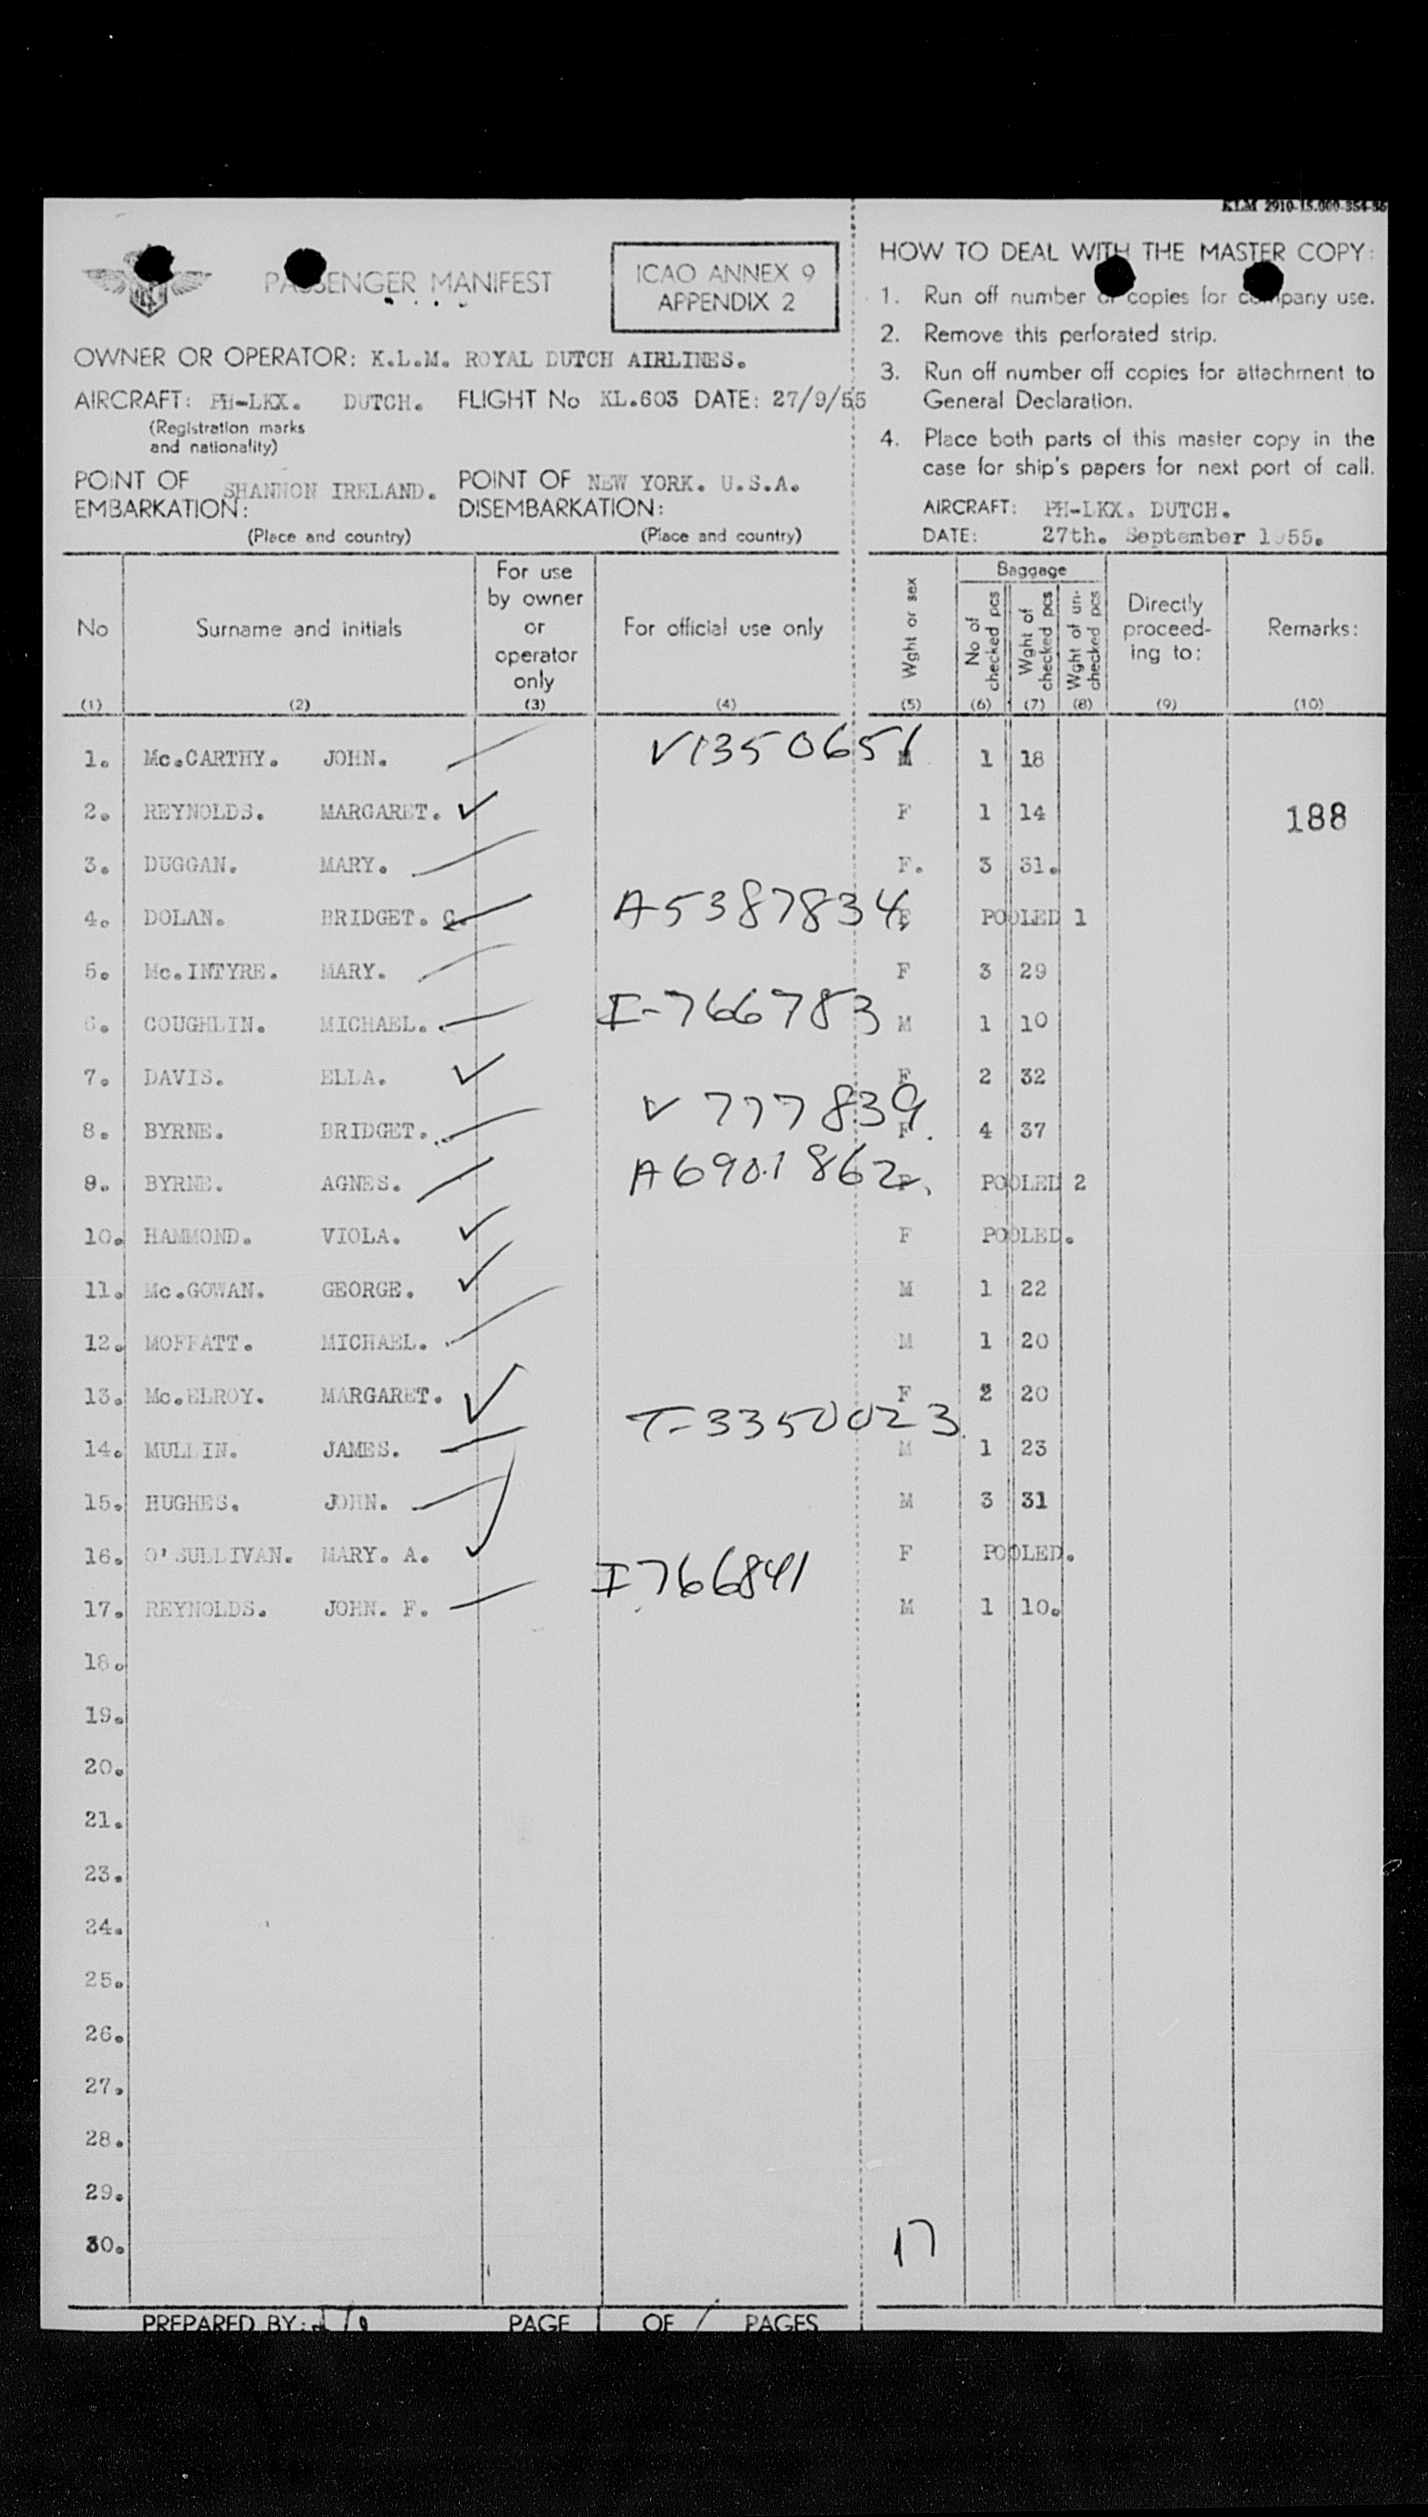 KLM 2910-15.000-354-56
PASSENGER MANIFEST
ICAO ANNEX 9
APPENDIX 2
OWNER OR OPERATOR: K.L.M. ROYAL DUTCH AIRLINES.
AIRCRAFT: PH-LKX. DUTCH. FLIGHT No KL.603 DATE: 27/9/55
(Registration marks
and nationality)
POINT OF EMBARKATION: SHANNON IRELAND. POINT OF DISEMBARKATION: NEW YORK. U.S.A.
(Place and country) (Place and country)
HOW TO DEAL WITH THE MASTER COPY:
1. Run off number of copies for company use.
2. Remove this perforated strip.
3. Run off number off copies for attachment to
General Declaration.
4. Place both parts of this master copy in the
case for ship's papers for next port of call.
AIRCRAFT: PH-LKX. DUTCH.
DATE: 27th. September 1955.
No Surname and initials For use by owner or operator only For official use only Wght or sex Baggage No of checked pcs Wght of checked pcs Wght of un-checked pcs Directly proceed-ing to: Remarks:
(1) (2) (3) (4) (5) (6) (7) (8) (9) (10)
1. Mc.CARTHY. JOHN. V1350651 M 1 18
2. REYNOLDS. MARGARET. ✓ F 1 14 188
3. DUGGAN. MARY. F. 3 31.
4. DOLAN. BRIDGET. C. A-5387834 F POOLED 1
5. Mc.INTYRE. MARY. F 3 29
6. COUGHLIN. MICHAEL. I-766783 M 1 10
7. DAVIS. ELLA. ✓ F 2 32
8. BYRNE. BRIDGET. V 777839 F. 4 37
9. BYRNE. AGNES. A6901862 F. POOLED 2
10. HAMMOND. VIOLA. ✓ F POOLED.
11. Mc.GOWAN. GEORGE. ✓ M 1 22
12. MOFFATT. MICHAEL. M 1 20
13. Mc.ELROY. MARGARET. ✓ F 2 20
14. MULLIN. JAMES. T-3350023 M 1 23
15. HUGHES. JOHN. M 3 31
16. O'SULLIVAN. MARY. A. ✓ F POOLED.
17. REYNOLDS. JOHN. F. I766841 M 1 10.
18.
19.
20.
21.
23.
24.
25.
26.
27.
28.
29.
30.
17
PREPARED BY: PAGE 1 OF 1 PAGES